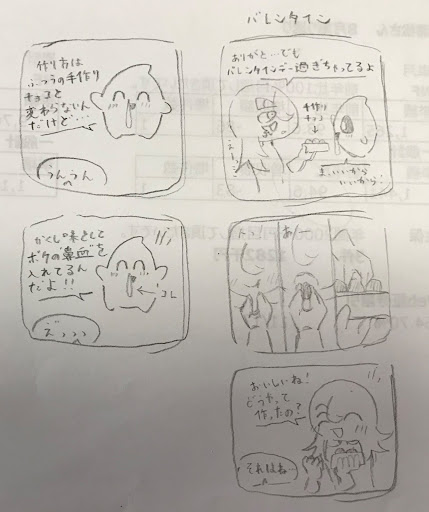 バレンタイン
ありがと…でも
バレンタインデー過ぎちゃってるよ
手作り
チョコ
↓
ま、いいから
いいから!
あー
おいしいね!
どうやって
作ったの?
それはね
作り方は
ふつうの手作り
チョコと
変わらないん
だけど…
うんうん
かくし味として
ボクの鼻血を
入れてるん
だよ!!
←コレ
えっっっ